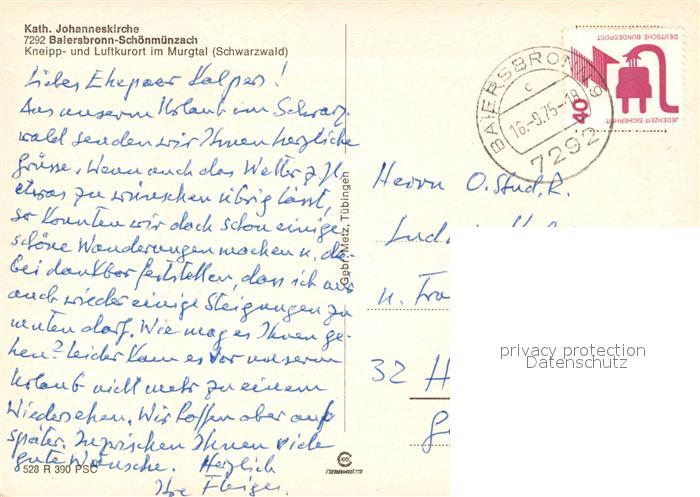 Kath. Johanneskirche
7292 Baiersbronn-Schönmünzach
Kneipp- und Luftkurort im Murgtal (Schwarzwald)
Liebes Ehepaar Kolpers!
Aus unserm Urlaub im Schwarz-
wald senden wir Ihnen herzliche
Grüsse. Wenn auch das Wetter z. Zt.
etwas zu wünschen übrig lässt,
so konnten wir doch schon einige
schöne Wanderungen machen u. da-
bei dankbar feststellen, dass ich mir
auch wieder einige Steigungen zu-
muten darf. Wie mag es Ihnen ge-
hen? Leider kam es vor unserm
Urlaub nicht mehr zu einem
Wiedersehen. Wir hoffen aber auf
später. Inzwischen Ihnen viele
gute Wünsche. Herzlich
Ihre
528 R 390 PSC
Gebr. Metz, Tübingen
BAIERSBRONN 6
c
16.-9.75-18
7292
40
DEUTSCHE BUNDESPOST
JEDERZEIT SICHERHEIT
Herrn O. Stud. R.
u.
32 H
privacy protection
Datenschutz